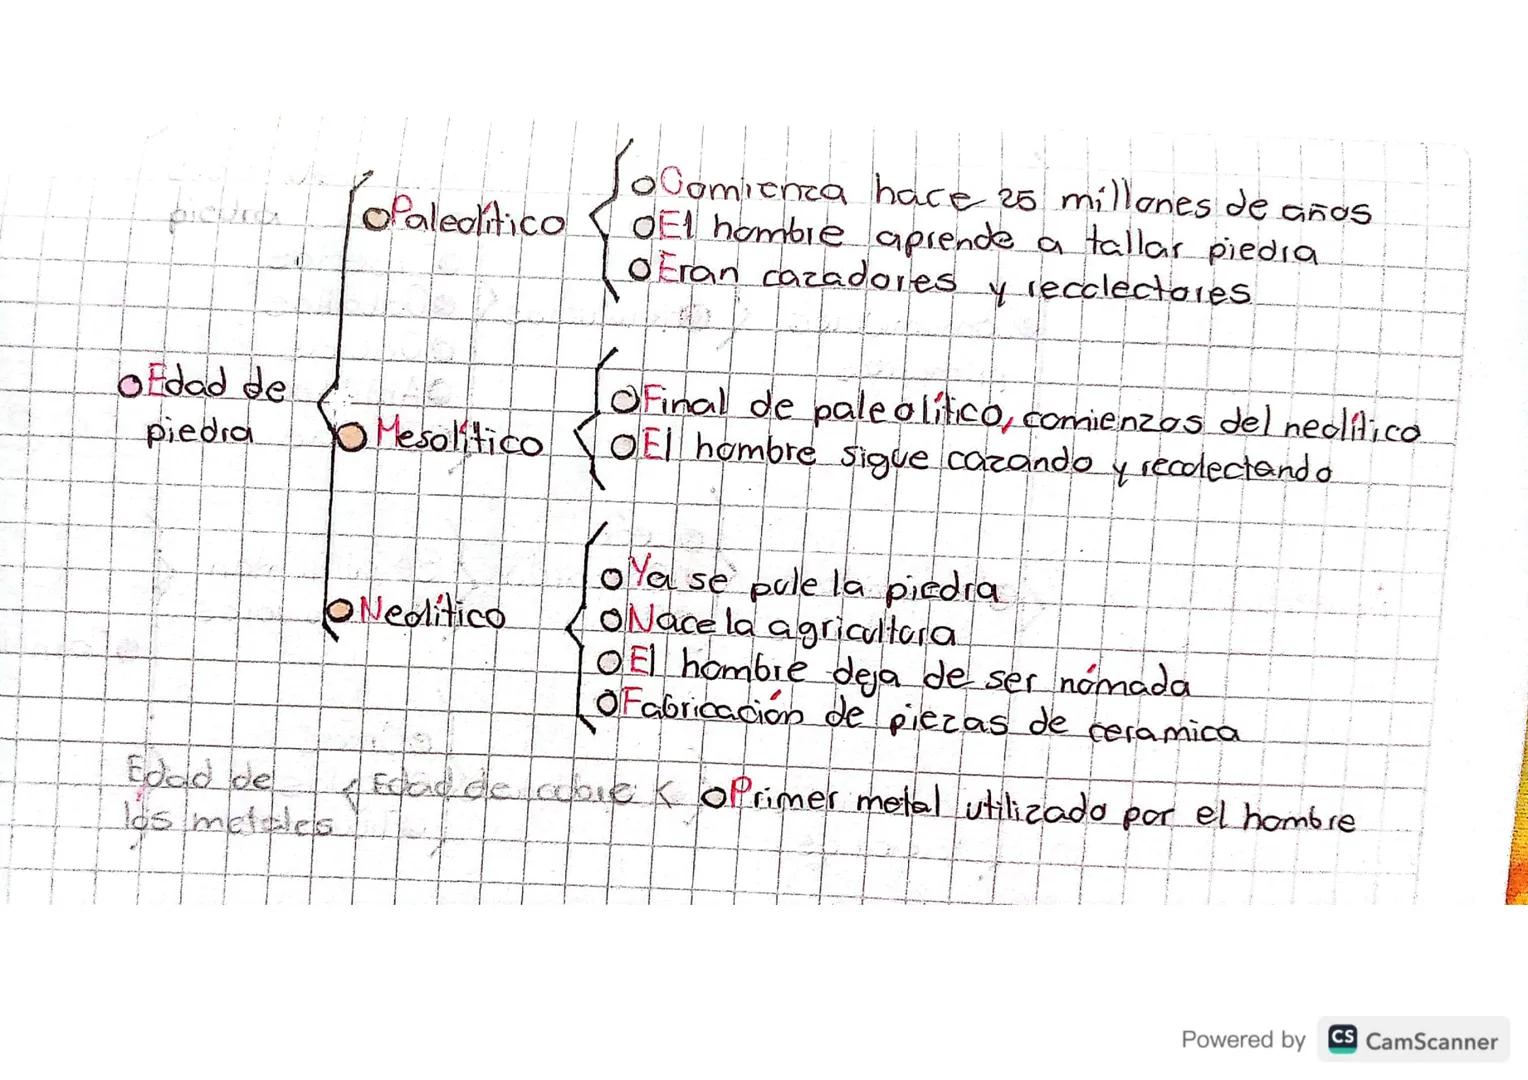 Comienza hace 25 millones de años
Paleolítico
El hombre aprende a tallar piedra
Eran cazadores y recolectores
Edad de
piedra
Final de paleolítico, comienzos del neolítico
Mesolítico
El hombre sigue cazando y recolectando
Ya se pule la piedra
Neolítico
Nace la agricultura
El hombre deja de ser nómada
Fabricación de piezas de ceramica
Edad de
los metales
Edad de cobre
Primer metal utilizado por el hombre
Powered by CS CamScanner